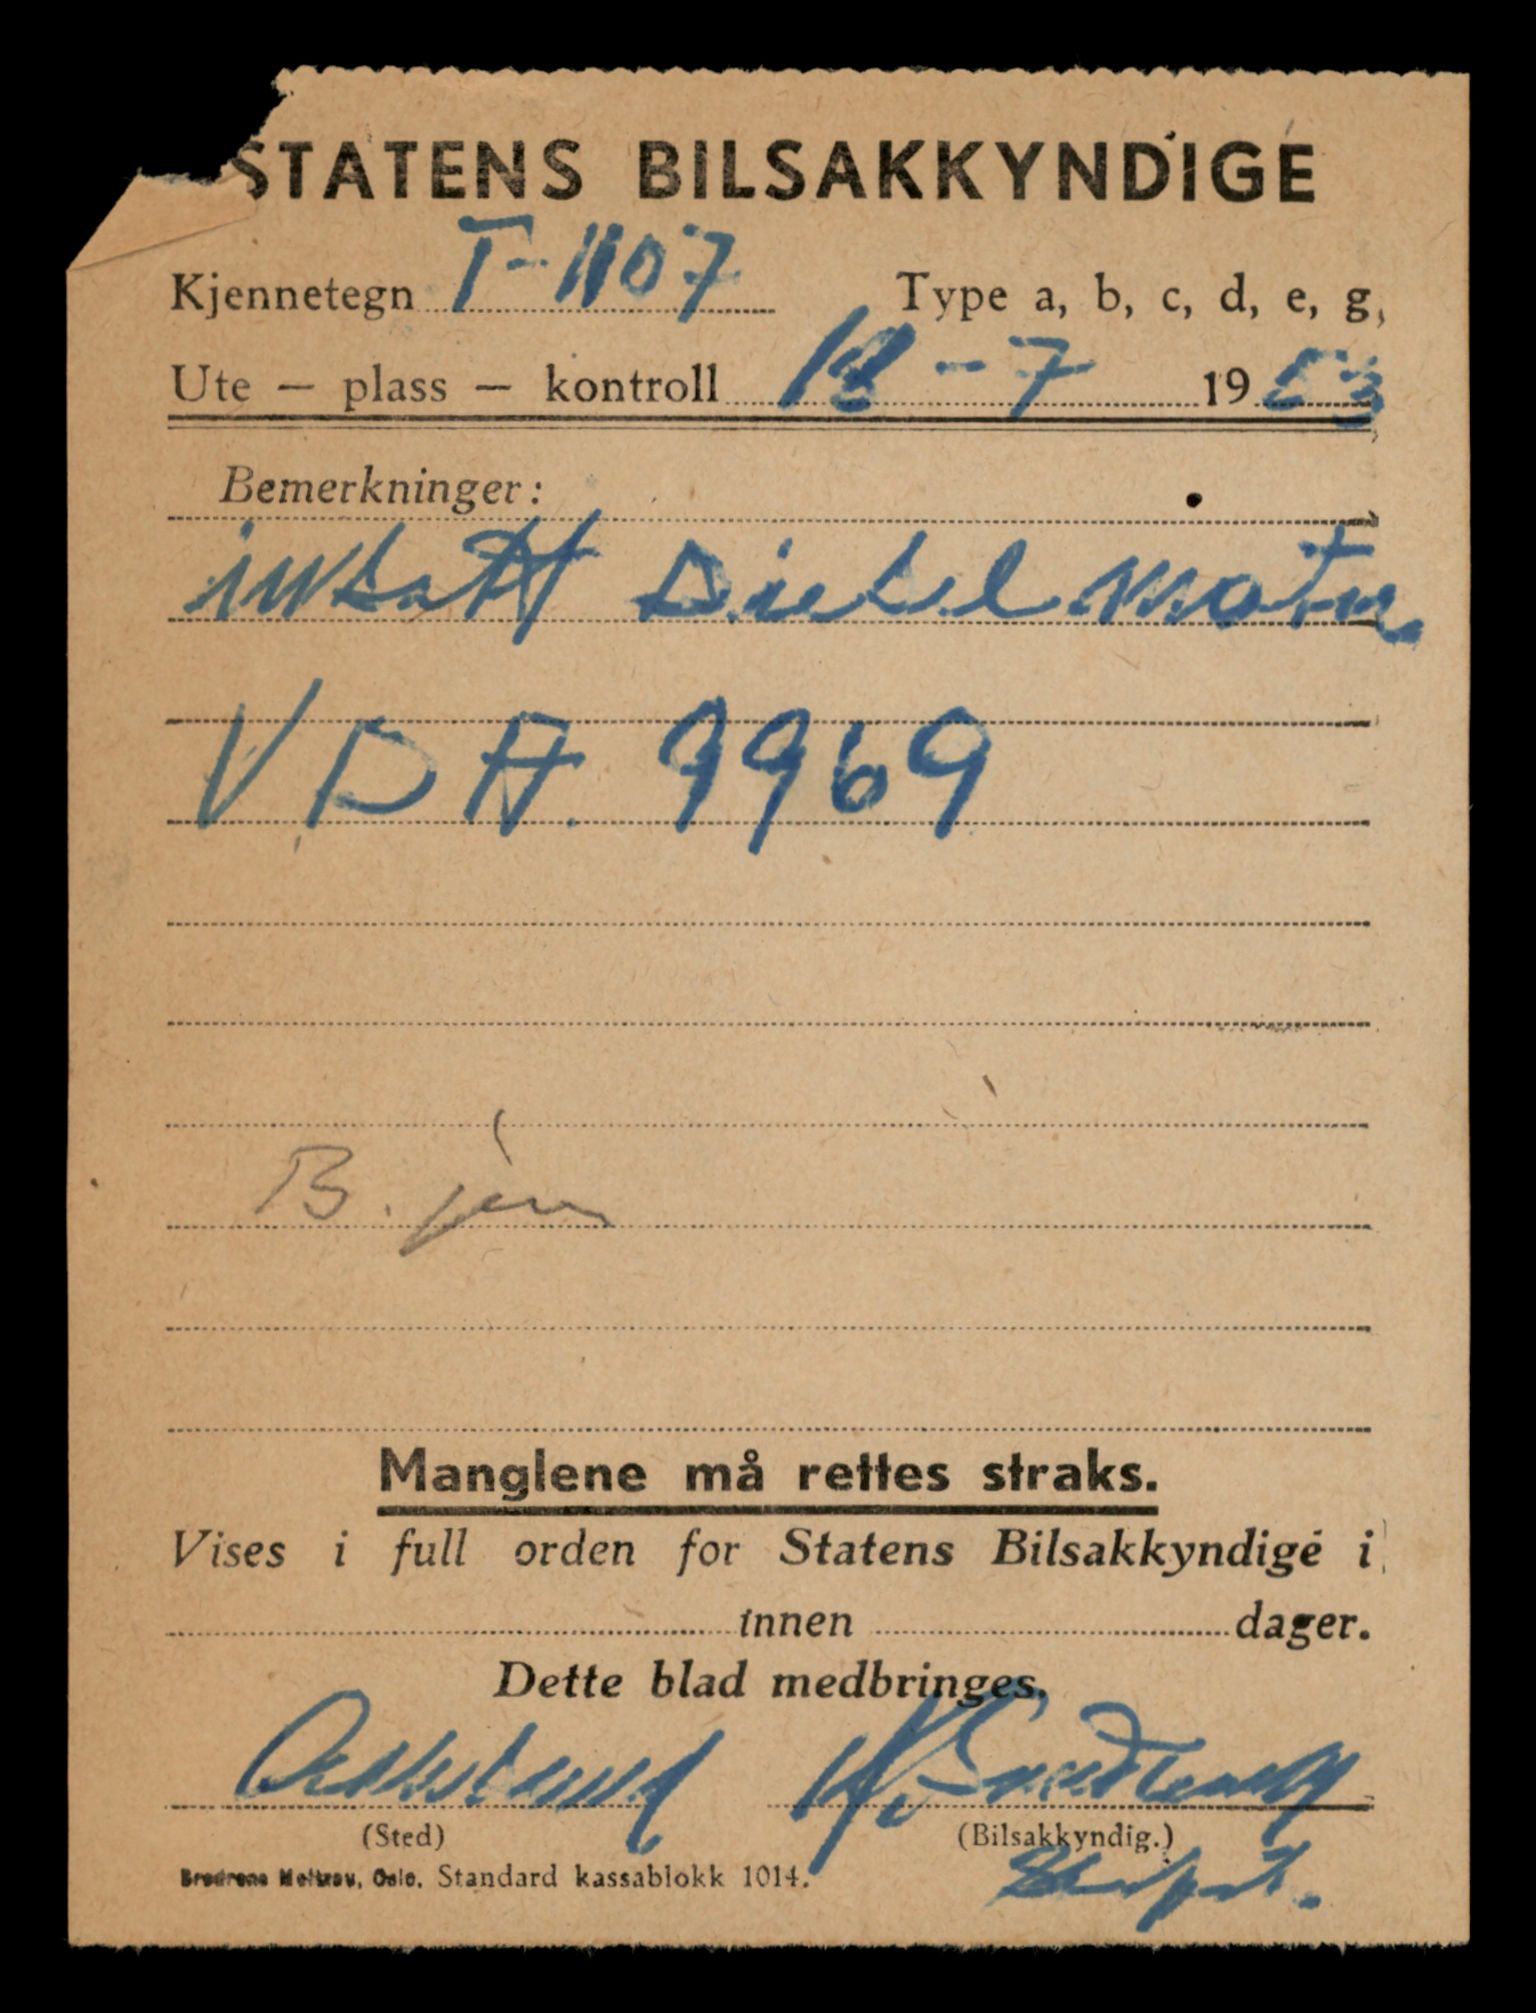 STATENS BILSAKKYNDIGE
Kjennetegn T-1107 Type a, b, c, d, e, g,
Ute — plass — kontroll 18-7 1953
Bemerkninger:
insatt Diesel motor
V D A. 9969
B. jen
Manglene må rettes straks.
Vises i full orden for Statens Bilsakkyndige i
innen dager.
Dette blad medbringes.
(Sted) (Bilsakkyndig.)
Brødrene Oslo. Standard kassablokk 1014.